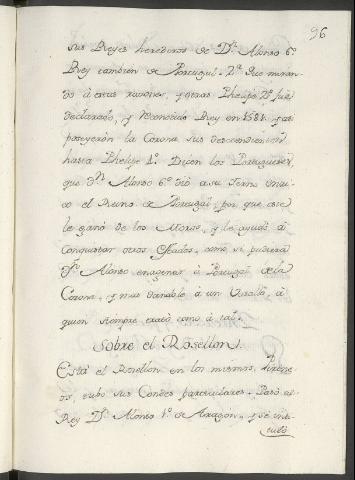 96
sus Reyes herederos de Dn. Alonso 6º
Rey tambien de Portugal. 2ª Que miran
do à estas razones, y otras Phelipe 2º fue
declarado, y reconocido Rey en 1581. y asi
poseyeron la Corona sus descendientes
hasta Phelipe 4º. Dicen los Portugueses
que Dn. Alonso 6º diò a su Yerno Enrri
co el Reyno de Portugal, por que este
le ganò de los Moros, y le ayudò à
conquistar otros Estados, como si pudiera
Dn. Alonso enagenar à Portugal de la
Corona, y mas dandole à un Vasallo, à
quien siempre tratò como à tal.
Sobre el Rosellon.
Està el Rosellon en los mismos Pirene
os, tubo sus Condes particulares. Pasò al
Rey Dn. Alonso 1º de Aragon, y se inti
tulò